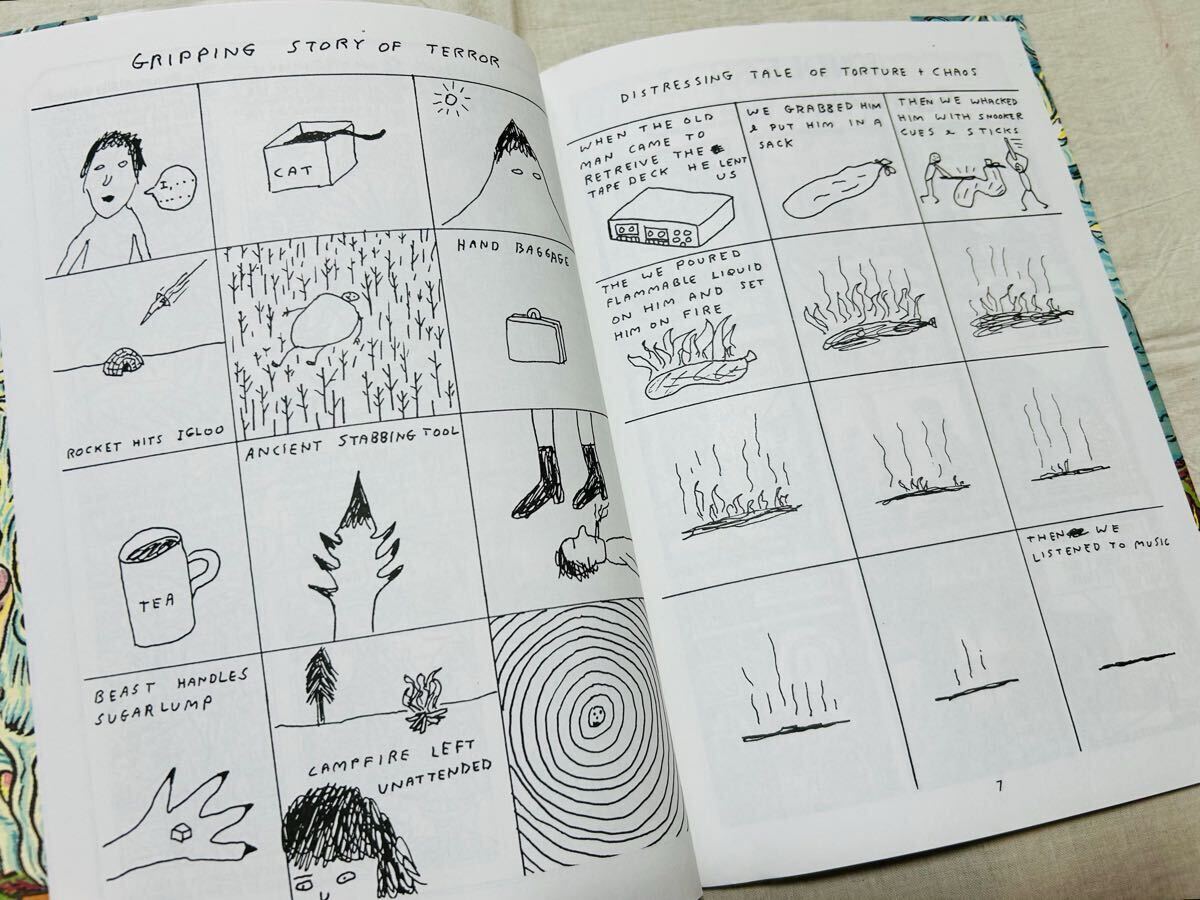 GRIPPING STORY OF TERROR
I,...
....
CAT
ROCKET HITS IGLOO
HAND BAGGAGE
TEA
ANCIENT STABBING TOOL
BEAST HANDLES
SUGARLUMP
CAMPFIRE LEFT
UNATTENDED
DISTRESSING TALE OF TORTURE + CHAOS
WHEN THE OLD
MAN CAME TO
RETREIVE THE
TAPE DECK HE LENT
US
WE GRABBED HIM
& PUT HIM IN A
SACK
THEN WE WHACKED
HIM WITH SNOOKER
CUES & STICKS
THE WE POURED
FLAMMABLE LIQUID
ON HIM AND SET
HIM ON FIRE
THEN WE
LISTENED TO MUSIC
7